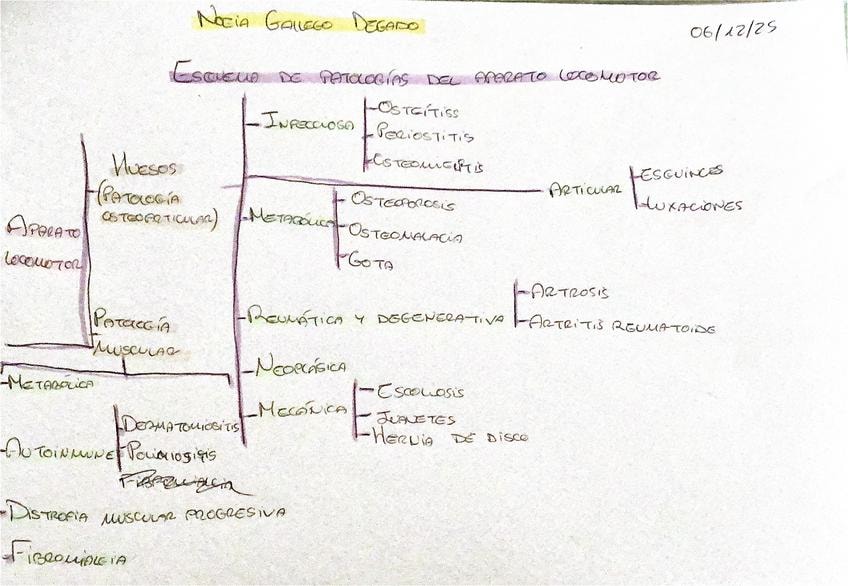 NOEIA GALLEGO DEGADO
06/12/25
ESCUEMA DE PATOLOGÍAS DEL APARATO LOCOMOTOR
APARATO
LOCOMOTOR
HUESOS
(PATOLOGÍA
OSTEOARTICULAR)
INFECCIOSA
OSTEÍTISS
PERIOSTITIS
OSTEOMIELITIS
ARTICULAR
ESGUINCES
LUXACIONES
METABÓLICA
OSTEOPOROSIS
OSTEOMALACIA
GOTA
REUMÁTICA Y DEGENERATIVA
ARTROSIS
ARTRITIS REUMATOIDE
NEOPLÁSICA
MECÁNICA
ESCOLIOSIS
JUANETES
HERNIA DE DISCO
PATOLOGÍA
MUSCULAR
METABÓLICA
AUTOINMUNE
DERMATOMIOSITIS
POLIMIOSITIS
DISTROFIA MUSCULAR PROGRESIVA
FIBROMIALGIA